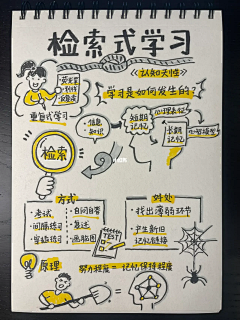 检索式学习
《认知天性》
学习是如何发生的?
重复式学习
·信息
·知识
短期
记忆
心理表征
长期
记忆
心智模型
检索
方式
·考试
·间隔练习
·穿插练习
·自问自答
·复述
·画脑图
TEST
好处
·找出薄弱环节
·产生新旧
记忆链接
原理
努力程度=记忆保持程度